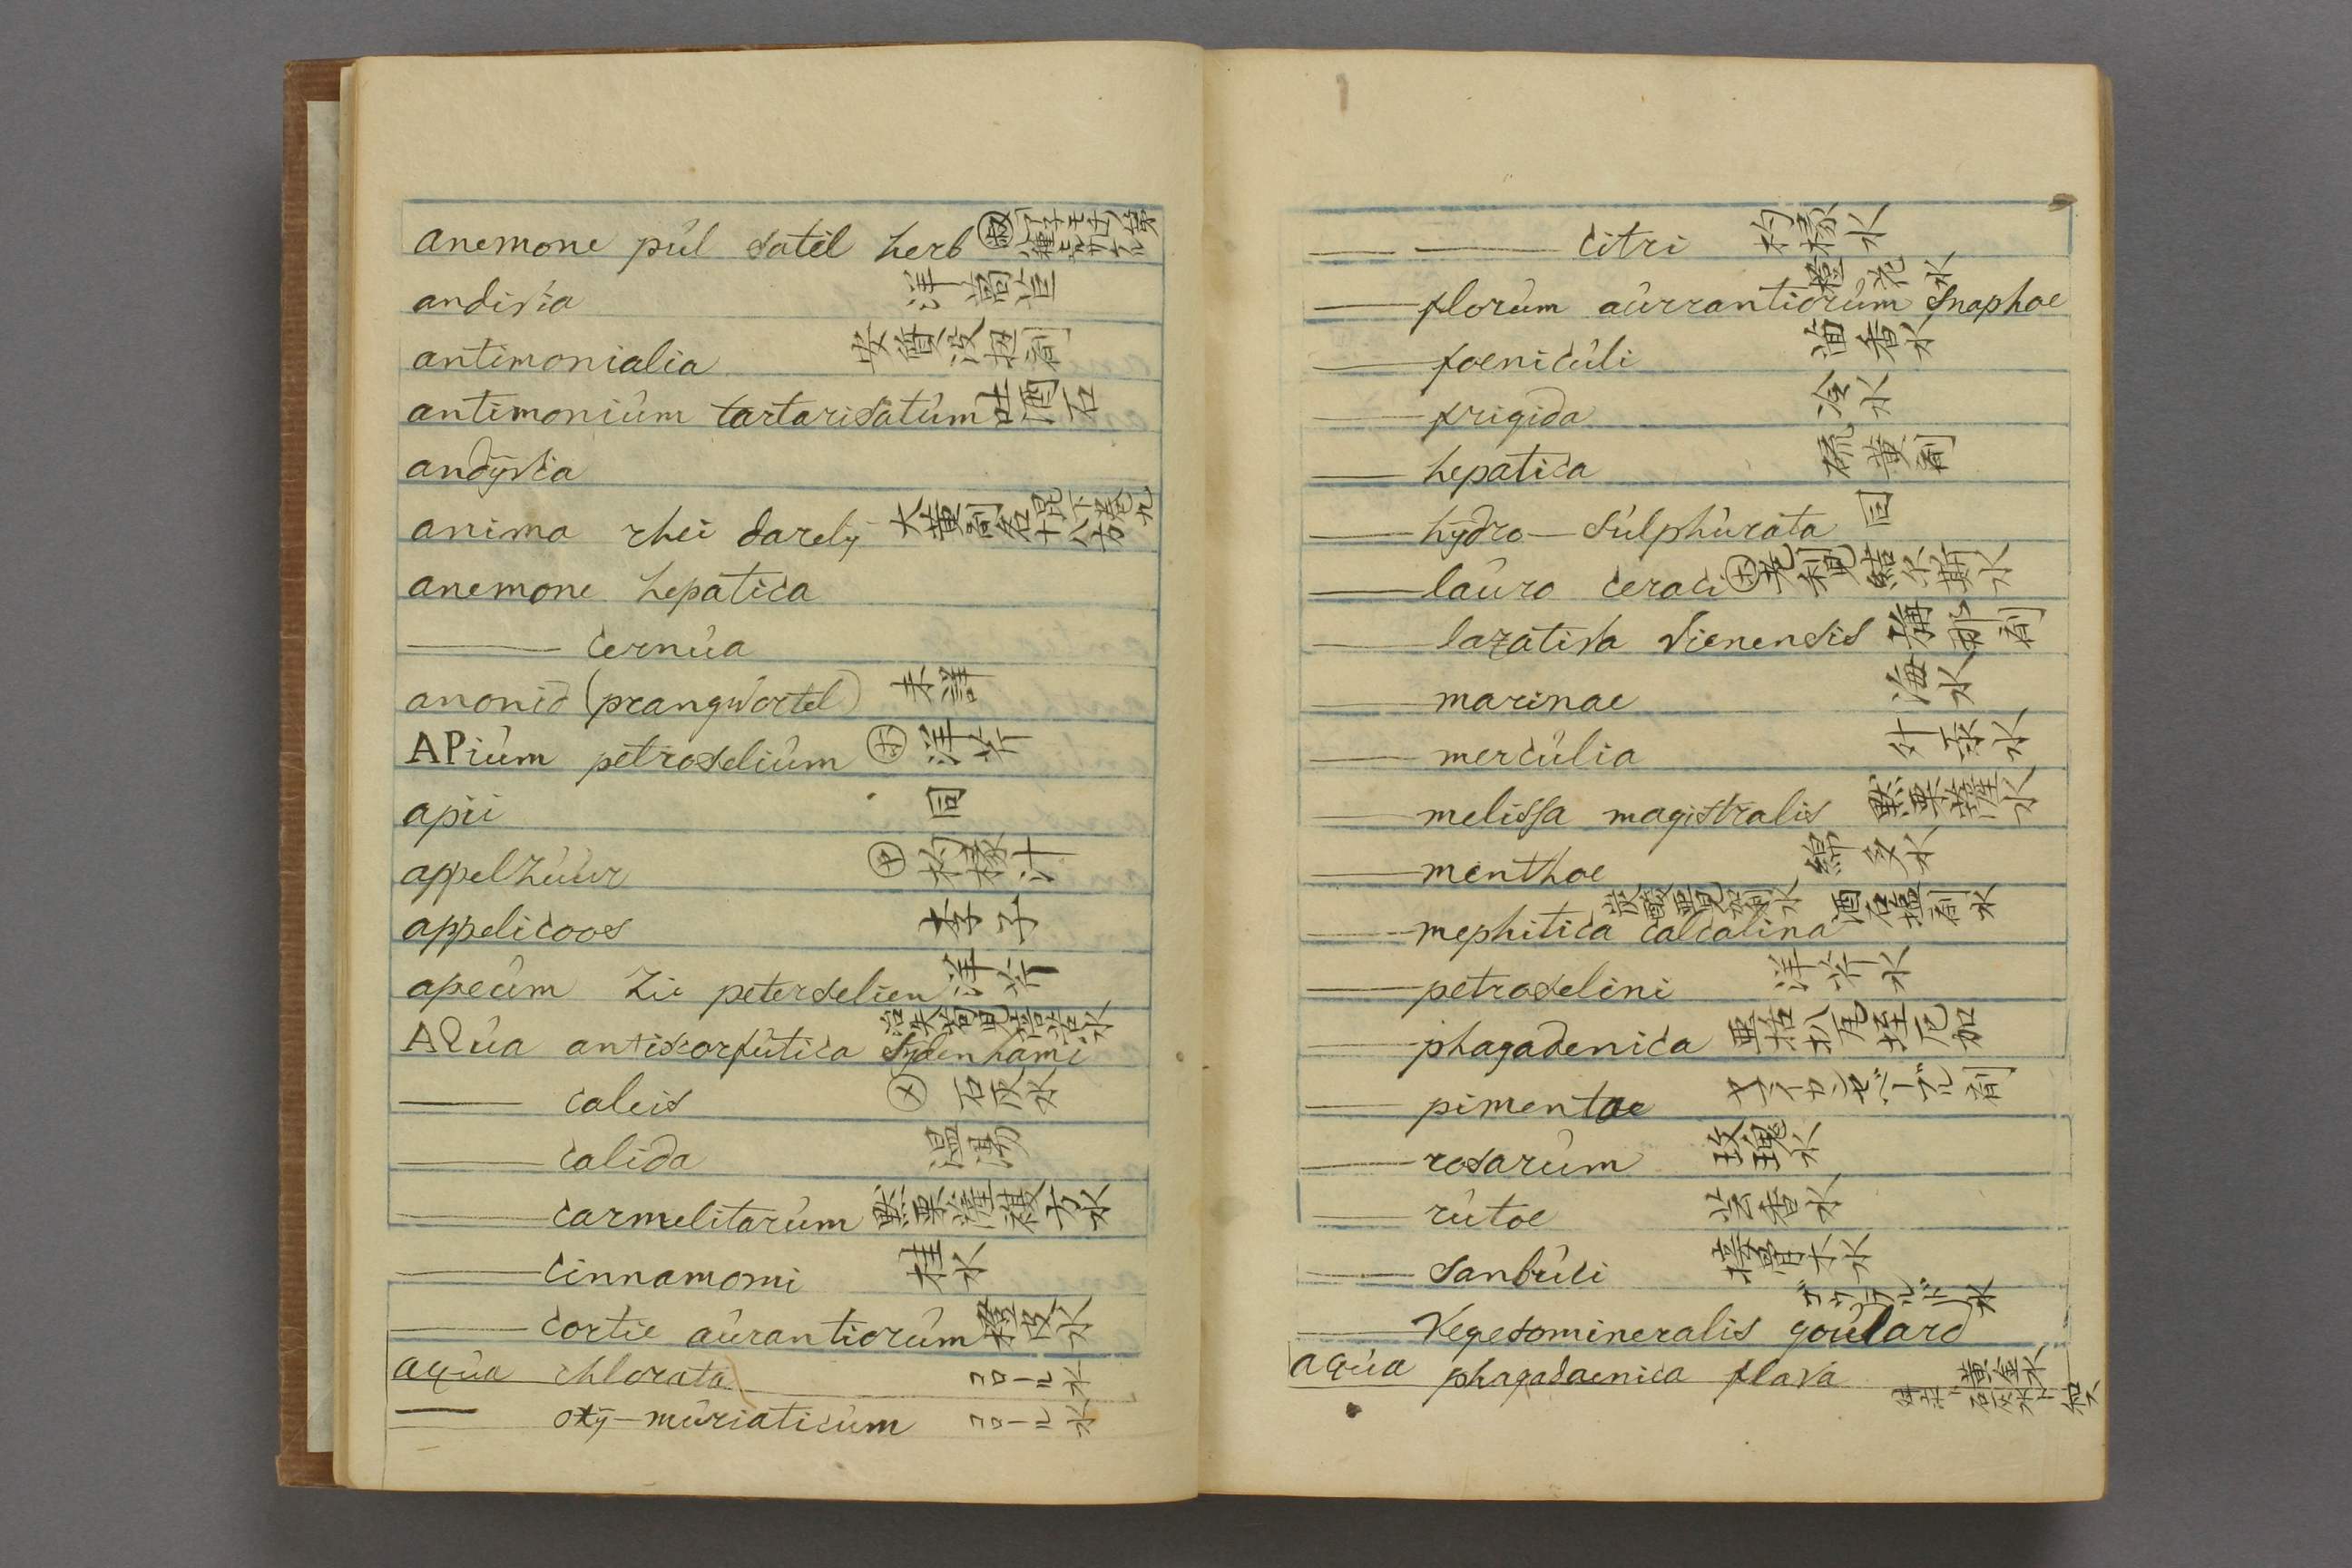 anemone púl satel herb
andivia 洋萵苣
antimonialia 安質没扭剤
antimoniúm tartarisatúm 吐酒石
andÿvia
anima rhei darelÿ 大黄剤名
anemone hepatica
—— cernúa
anonid (prangwortel) 未詳
APiúm petroseliúm ㋔ 洋芹
apii 同
appelzúúr ㋳ 枸櫞汁
appelicoos 李子
apeúm Zie peterselien 洋芹
AQúa antiscorfútica Sydenhami
—— calcis ㋱ 石灰水
—— calida 温湯
—— carmelitarúm 黙栗薩複方水
—— cinnamomi 桂水
—— cortic aúrantiorúm 橙皮水
aqúa chlorata コロール水
—— oxÿ-múriaticúm コロール水
—— —— citri 枸櫞水
—— florúm aúrrantiorúm Snaphoe 橙花水
—— foenicúli 茴香水
—— frigida 冷水
—— hepatica 硫黄剤
—— hÿdro—Súlphúrata 同
—— laúro ceraci ㋔ 老利児結尓斯水
—— laxativa Vienensis 旃那剤
—— marinae 海水
—— mercúlia 升汞水
—— melissa magistralis 黙栗薩水
—— menthoe 綿多水
—— mephitica calcalina 酒石塩剤水
—— petroselini 洋芹水
—— phagadenica
—— pimentae
—— rosarúm 玫瑰水
—— rútoe 芸香水
—— Sanbúci 接骨木水
—— Vegetomineralis goúlard
aqúa phagadaenica flava 黄金水